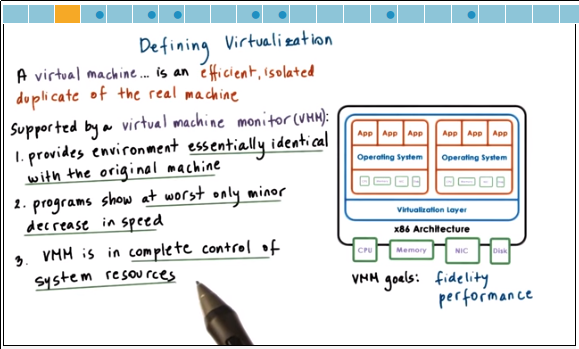 Defining Virtualization
A virtual machine... is an efficient, isolated
duplicate of the real machine
Supported by a virtual machine monitor (VMM):
1. provides environment essentially identical
with the original machine
2. programs show at worst only minor
decrease in speed
3. VMM is in complete control of
system resources
App App App App App App
Operating System Operating System
Virtualization Layer
x86 Architecture
CPU Memory NIC Disk
VMM goals: fidelity
performance